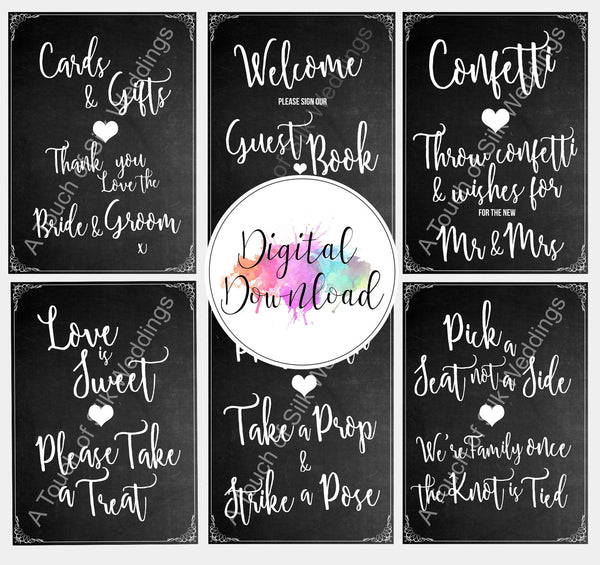 Cards
& Gifts
Thank you
Love the
Bride & Groom
xJ
A Touch of Silk Weddings
Welcome
PLEASE SIGN OUR
Guest Book
A Touch of Silk Weddings
Confetti
Throw confetti
& wishes for
FOR THE NEW
Mr & Mrs
A Touch of Silk Weddings
Digital
Download
Love
is
Sweet
Please Take
a Treat
A Touch of Silk Weddings
Take a Prop
&
Strike a Pose
A Touch of Silk Weddings
Pick a
Seat not a Side
We're Family once
the Knot is Tied
A Touch of Silk Weddings